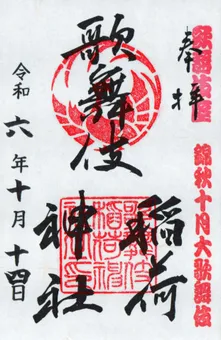 奉拝
錦秋十月大歌舞伎
歌舞伎
稲荷
神社
令和六年十月十四日